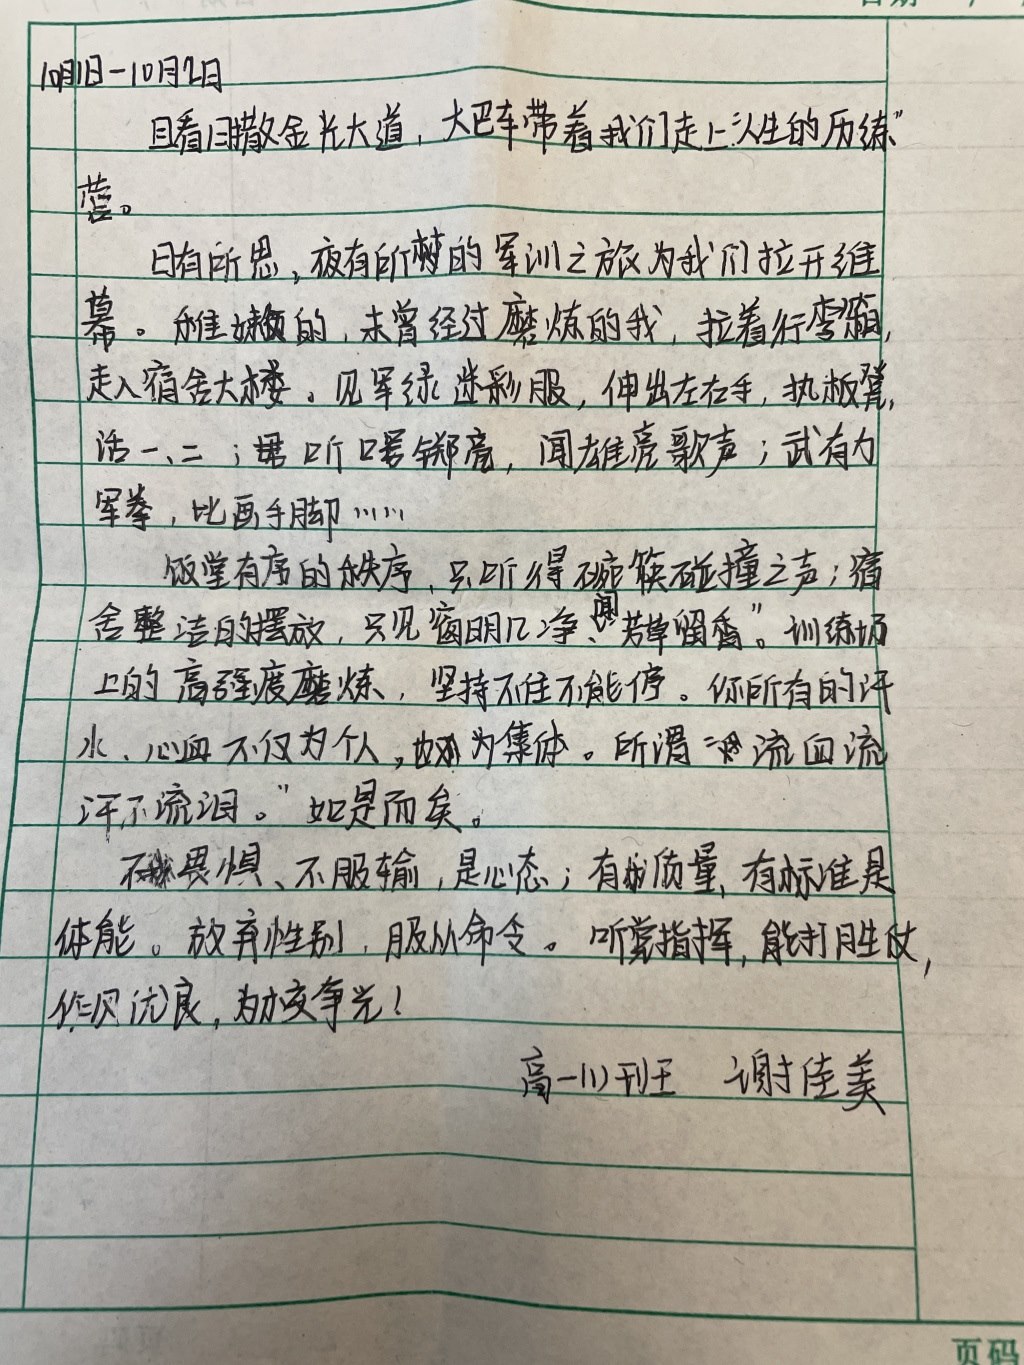 10月1日-10月2日
且看日撒金光大道，大巴车带着我们走上“人生的历练”
营。
日有所思，夜有所梦的军训之旅为我们拉开帷
幕。稚嫩的，未曾经过磨炼的我，拉着行李箱，
走入宿舍大楼。见军绿迷彩服，伸出左右手，执板凳，
活一、二；听口号铿亮，闻雄亮歌声；武有力
军拳，比画手脚……
饭堂有序的秩序，只听得碗筷碰撞之声；宿
舍整洁的摆放，只见窗明几净、闻“芳草留香”。训练场
上的高强度磨炼，坚持不住不能停。你所有的汗
水、心血不仅为个人，也为集体。所谓“流血流
汗不流泪。”如是而矣。
不畏惧、不服输，是心态；有质量，有标准是
体能。放弃性别，服从命令。听党指挥，能打胜仗，
作风优良，为校争光！
高一(1)班 谢佳美
页码